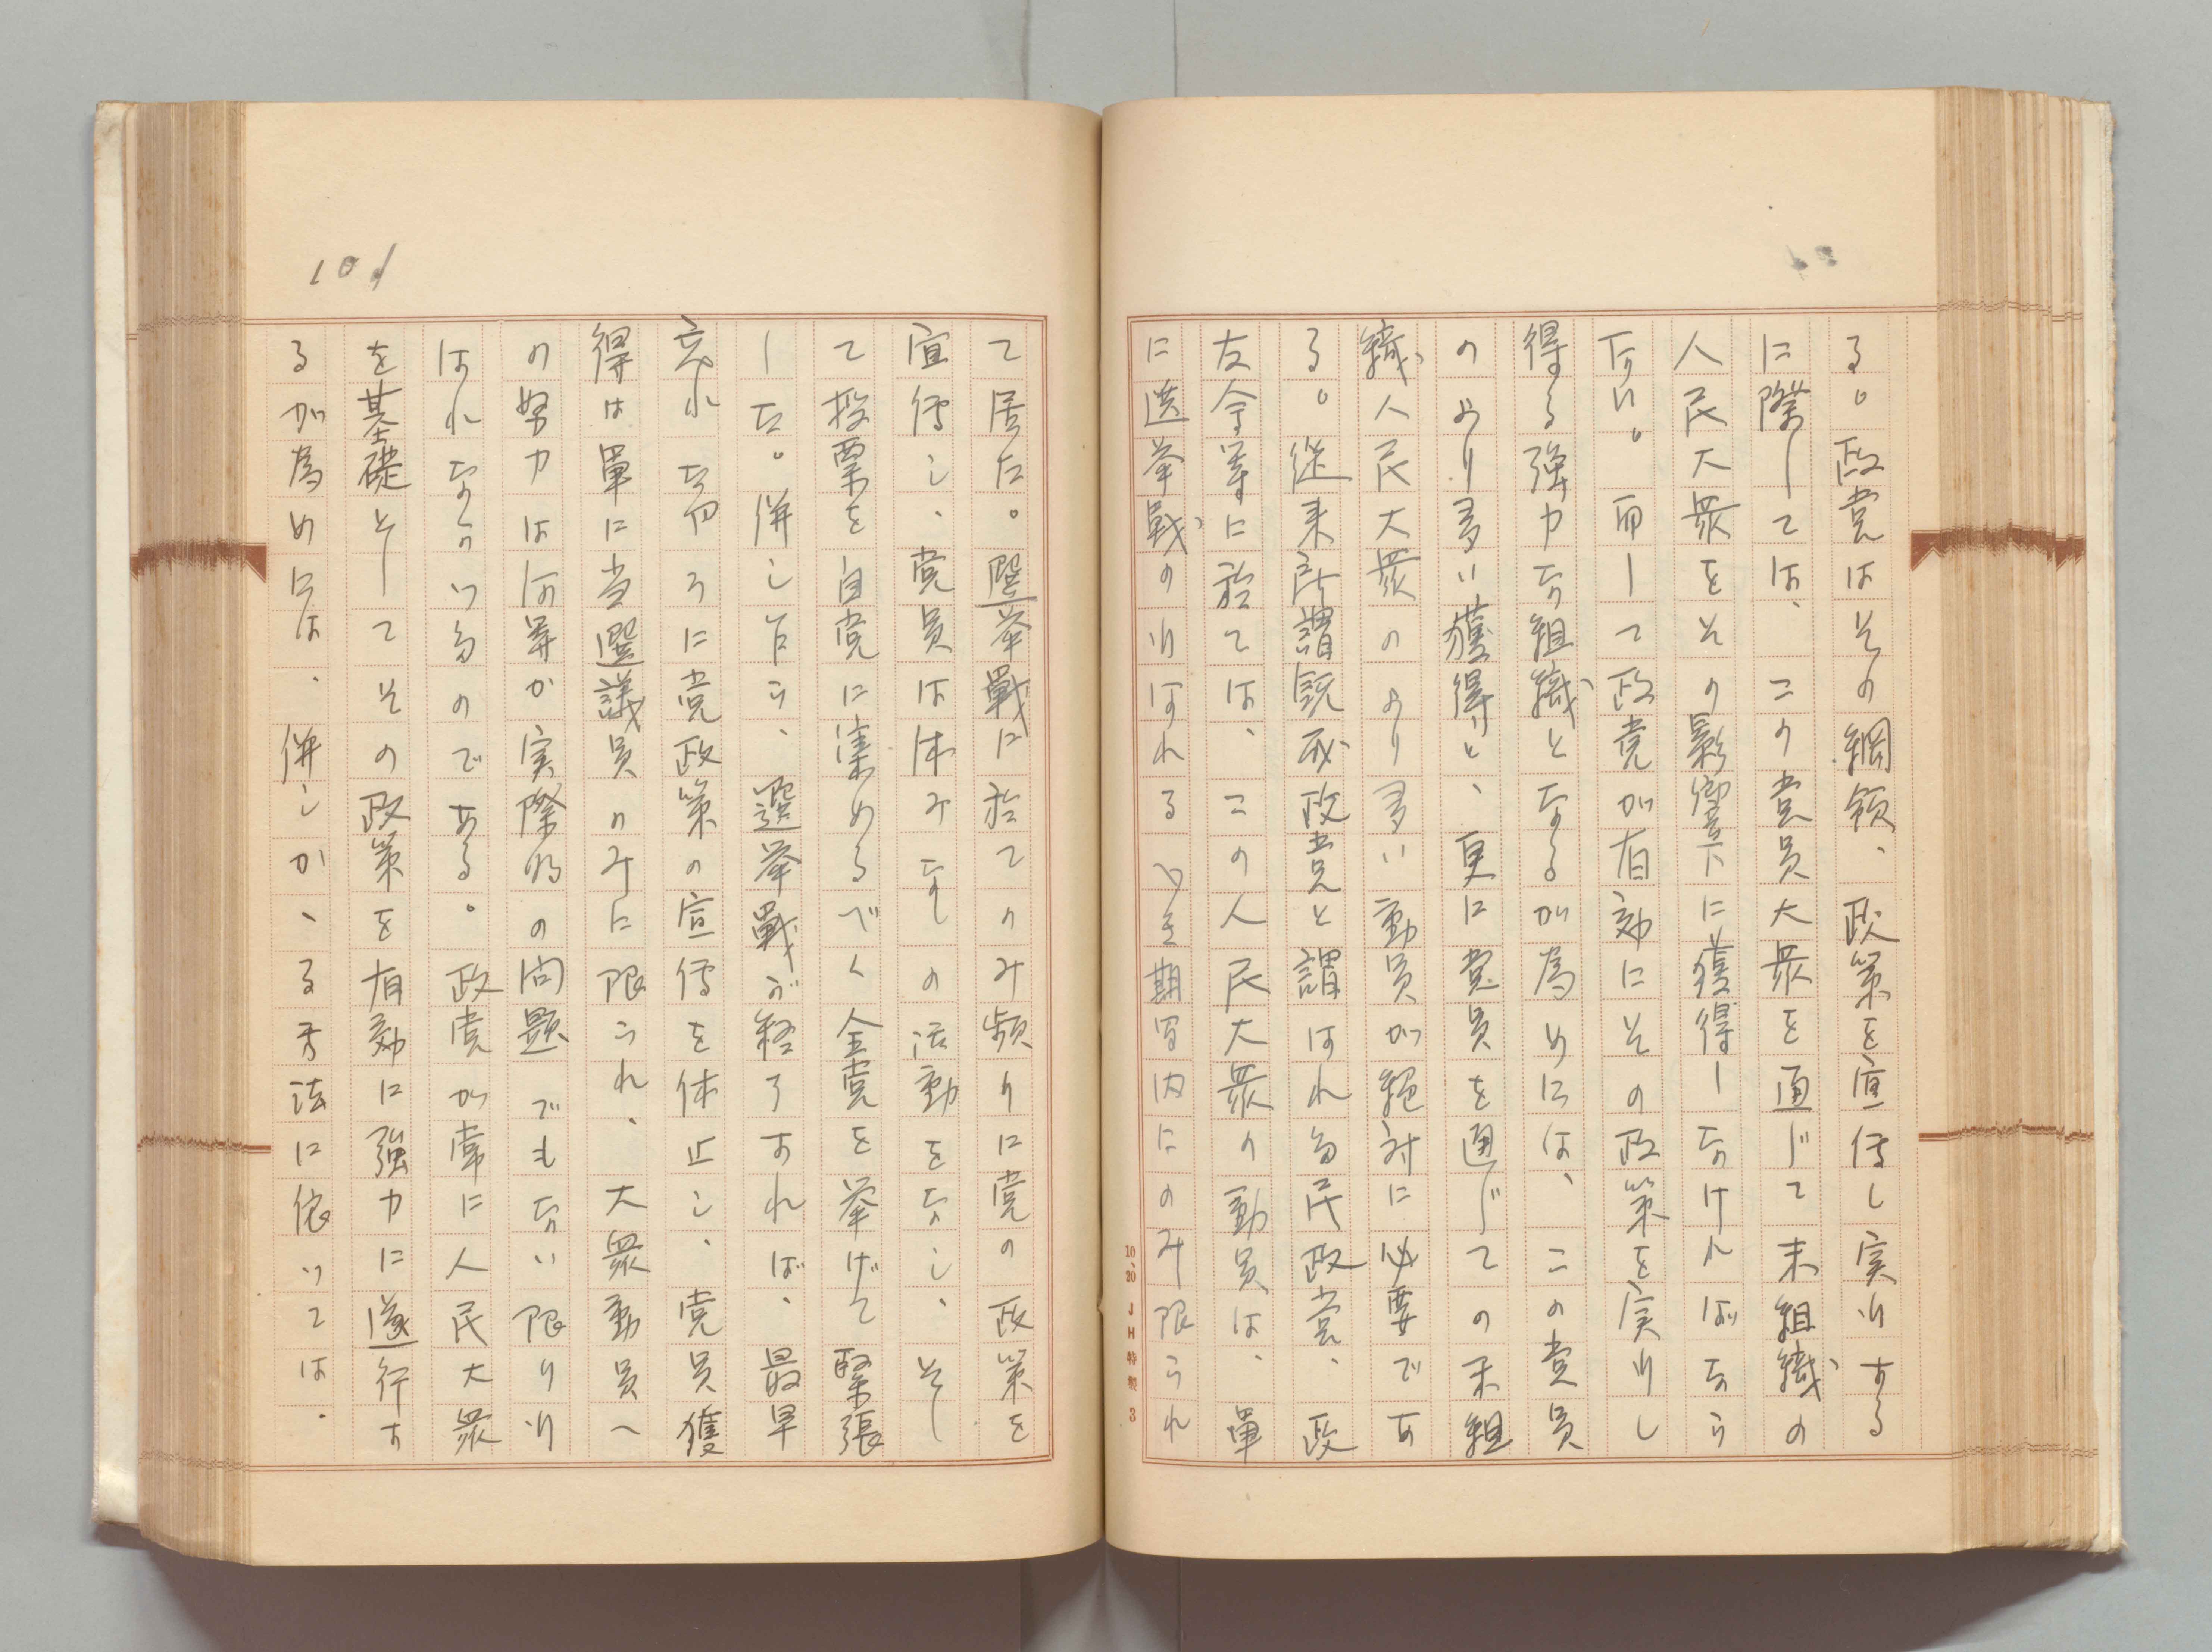 る。政党はその綱領、政策を宣伝し実行する
に際しては、この党員大衆を通じて未組織の
人民大衆をその影響下に獲得しなければなら
ない。而して政党が有効にその政策を実行し
得る強力な組織となるが為めには、この党員
のより多い獲得と、更に党員を通じての未組
織人民大衆のより多い動員が絶対に必要であ
る。従来所謂既成政党と謂はれる民政党、政
友会等に於ては、この人民大衆の動員は、単
に選挙戦の行はれるべき期間内にのみ限られ
10、20 JH特製 3
101
て居た。選挙戦に於てのみ頻りに党の政策を
宣伝し、党員は休みなしの活動をなし、そし
て投票を自党に集めるべく全党を挙げて緊張
した。併し乍ら、選挙戦が終了すれば、最早
忘れたやうに党政策の宣伝を休止し、党員獲
得は単に当選議員のみに限られ、大衆動員へ
の努力は何等か実際的の問題でもない限り行
はれないのである。政党が常に人民大衆
を基礎としてその政策を有効に強力に遂行す
るが為めには、併しかゝる方法に依いては、